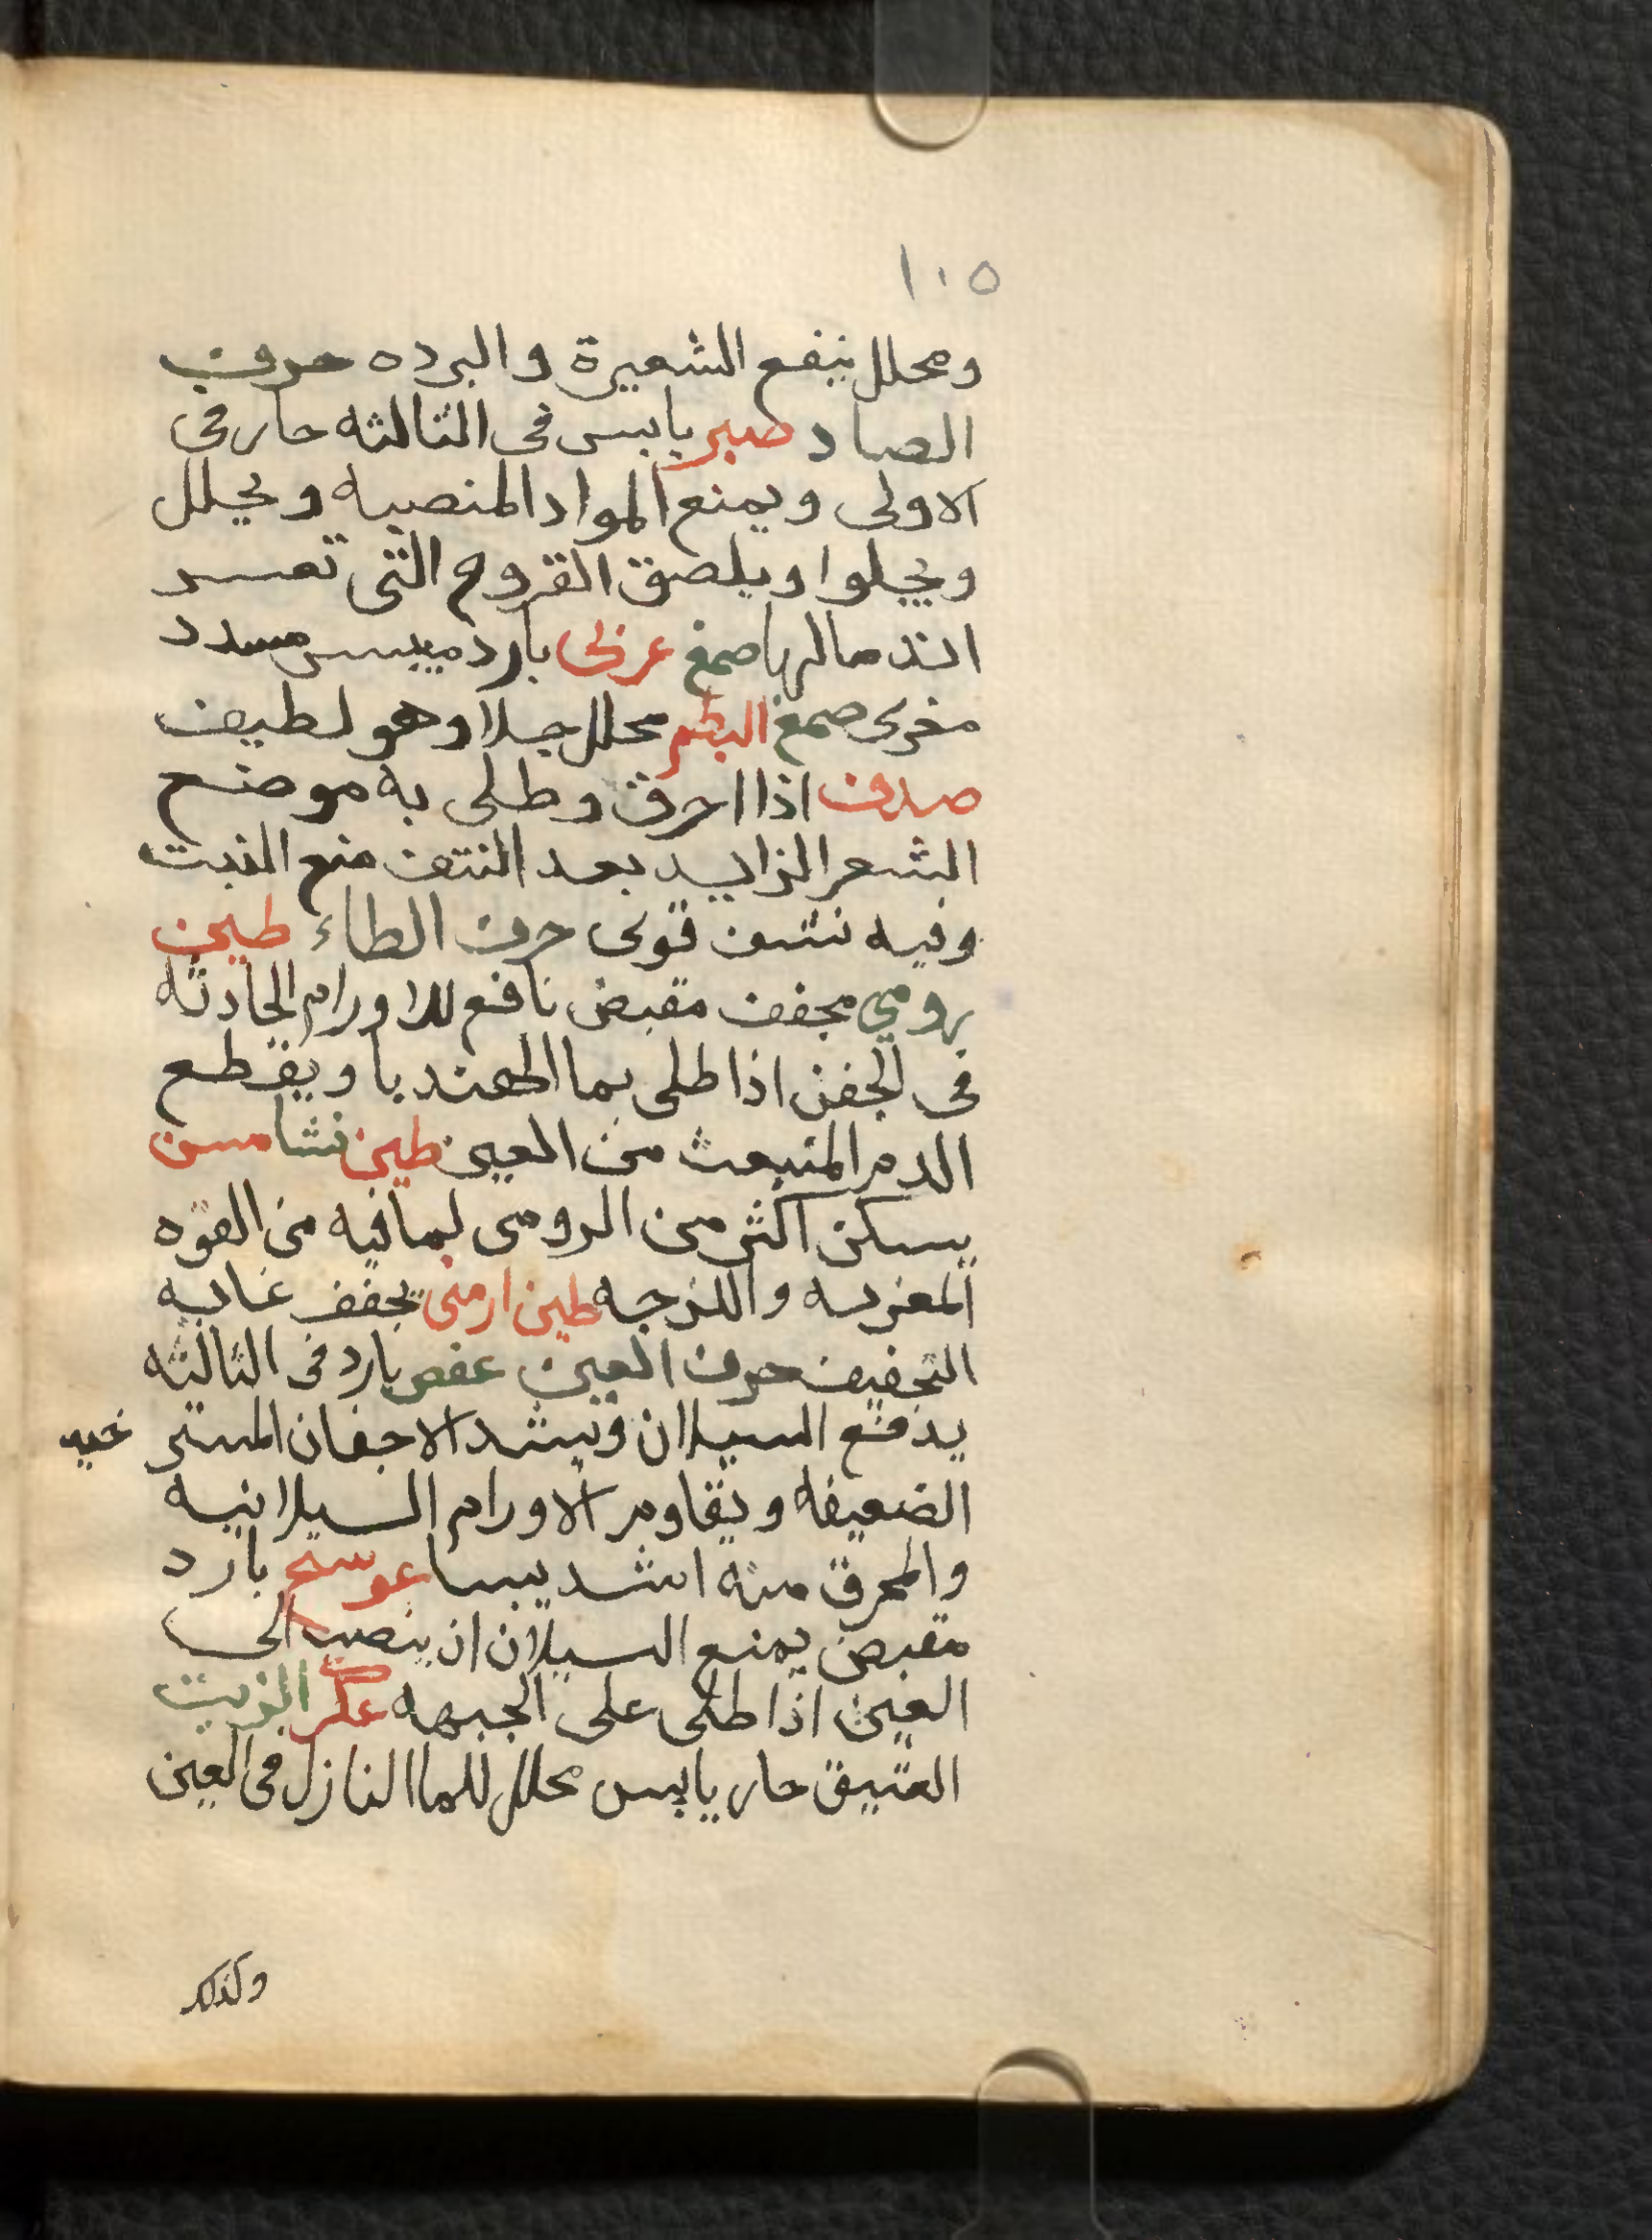 ١٠٥
ومحلل ينفع الشعيرة والبرده حرف
الصاد صبر يابس فى الثالثه حار فى
الاولى ويمنع المواد المنصبه ويحلل
ويجلوا ويلصق القروح التى تعسر
اندمالها صمغ عربى بارد ميبس مسدد
مغرى صمغ البطم محلل جلا وهو لطيف
صدف اذا احرق وطلى به موضع
الشعر الزايد بعد النتف منع النبت
وفيه نشف قوى حرف الطاء طين
رومي مجفف مقبض نافع للاورام الحادثه
فى الجفن اذا طلى بما الهندبا ويقطع
الدم المنبعث من العين طين شامس
يسكن اكثر من الرومى لما فيه من القوه
المغريه واللزجه طين ارمنى يجفف غايه
التجفيف حرف العين عفص بارد فى الثالثه
يدفع السيلان ويشد الاجفان المسترخيه
الضعيفه ويقاوم الاورام السيلانيه
والمحرق منه اشد يبسا عوسج بارد
مقبض يمنع السيلان ان ينصب الى
العين اذا طلى على الجبهه عكر الزيت
العتيق حار يابس محلل للما النازل فى العين
وكذلك